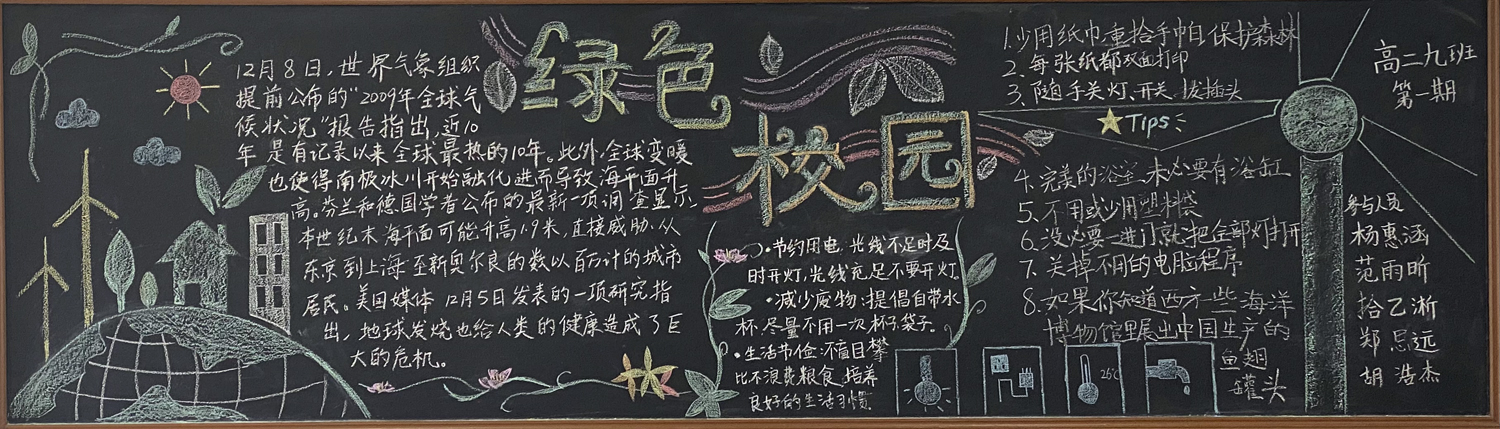 12月8日，世界气象组织
提前公布的“2009年全球气
候状况”报告指出，近10
年是有记录以来全球最热的10年。此外，全球变暖
也使得南极冰川开始融化，进而导致海平面升
高。芬兰和德国学者公布的最新一项调查显示，
本世纪末海平面可能升高1.9米，直接威胁从
东京到上海至新奥尔良的数以百万计的城市
居民。美国媒体12月5日发表的一项研究指
出，地球发烧也给人类的健康造成了巨
大的危机。
绿色
校园
•节约用电：光线不足时及
时开灯，光线充足不要开灯
•减少废物：提倡自带水
杯，尽量不用一次杯子袋子.
•生活节俭：不盲目攀
比不浪费粮食，培养
良好的生活习惯.
25℃
1.少用纸巾，重拾手帕，保护森林
2.每张纸都双面打印
3.随手关灯、开关、拔插头
Tips:
4.完美的浴室未必要有浴缸
5、不用或少用塑料袋
6、没必要一进门就把全部灯打开
7、关掉不用的电脑程序
8、如果你知道西方一些海洋
博物馆里展出中国生产的
鱼翅
罐头
高二九班
第一期
参与人员
杨惠涵
范雨昕
拾乙淅
郑思远
胡浩杰